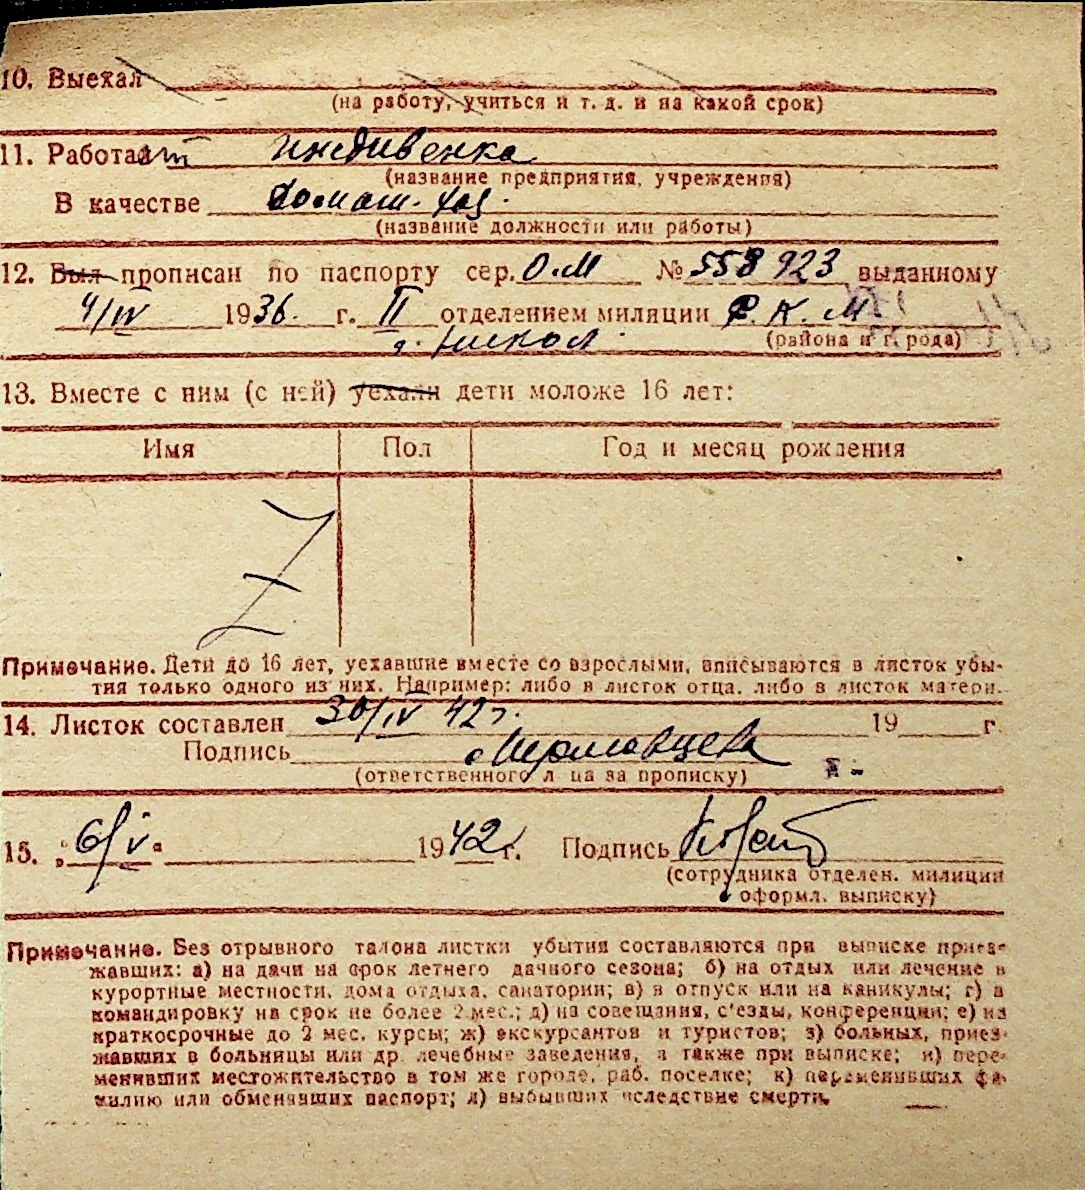 10. Выехал
(на работу, учиться и т. д. и на какой срок)
11. Работает иждивенка
(название предприятия, учреждения)
В качестве домаш. хоз.
(название должности или работы)
12. Был прописан по паспорту сер. О.М № 558 923 выданному
4/IV 1936. г. II отделением милиции Р. К. М
(района и города)
13. Вместе с ним (с ней) уехали дети моложе 16 лет:
Имя Пол Год и месяц рождения
Z
Примечание. Дети до 16 лет, уехавшие вместе со взрослыми, вписываются в листок убы-
тия только одного из них. Например: либо в листок отца, либо в листок матери.
14. Листок составлен 30/IV 42 г. 19 г.
Подпись
(ответственного лица за прописку)
15. „6/V“ 1942 г. Подпись
(сотрудника отделен. милиции
оформл. выписку)
Примечание. Без отрывного талона листки убытия составляются при выписке приез-
жавших: а) на дачи на срок летнего дачного сезона; б) на отдых или лечение в
курортные местности, дома отдыха, санатории; в) в отпуск или на каникулы; г) в
командировку на срок не более 2 мес.; д) на совещания, с'езды, конференции; е) на
краткосрочные до 2 мес. курсы; ж) экскурсантов и туристов; з) больных, приез-
жавших в больницы или др. лечебные заведения, а также при выписке; и) пере-
менивших местожительство в том же городе, раб. поселке; к) переменивших фа-
милию или обменявших паспорт; л) выбывших вследствие смерти.